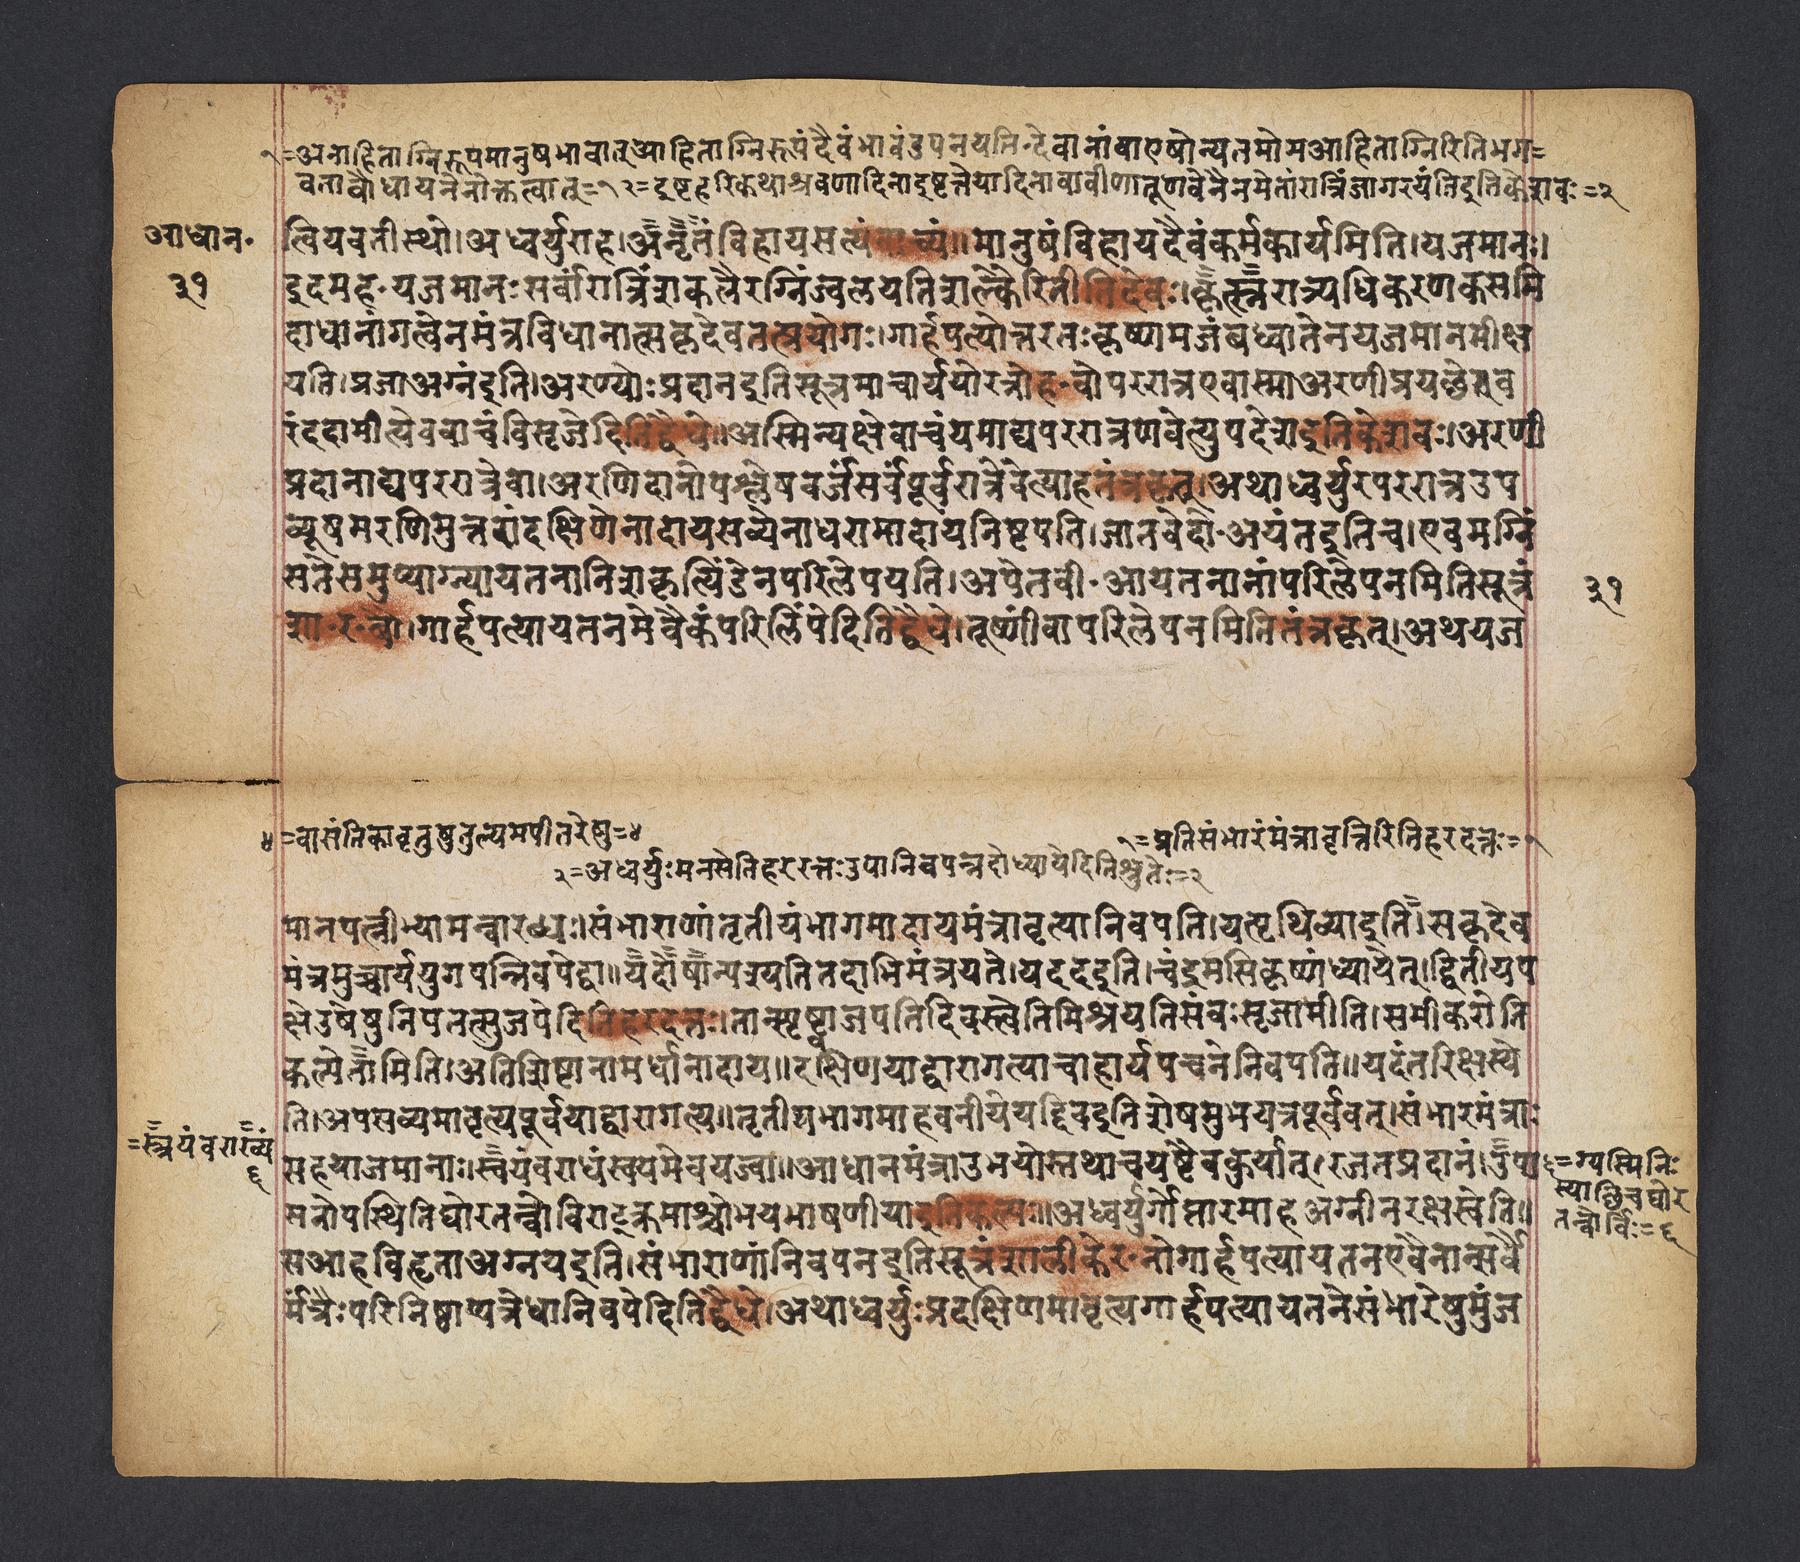 १=अनाहिताग्निरूपमानुषभावात् आहिताग्निरूपंदैवंभावंउपनयन्तिदेवानांवाएषोन्यतमोयआहिताग्निरितिभग=
वताबौधायनेनोक्तत्वात्=१ २=दुष्टहरिकथाश्रवणादिनादुष्टत्तेयादिनावावीणातूणवेनैनमेतांरात्रिंजागरयंतिइतिकेशवः=२
आधान॰
३१
त्वियवतीस्थो।अध्वर्युराह।अनृतंविहायसत्यंवाच्यं॥मानुषंविहायदैवंकर्मकार्यमिति।यजमानः।
इदमह॰यजमानःसर्वांरात्रिंशकलैरग्निंज्वलयतिशल्कैरितीतिदेवः।कृत्स्नरात्र्यधिकरणकसमि
दाधानांगत्वेनमंत्रविधानात्सकृदेवतत्प्रयोगः।गार्हपत्योत्तरतःकृष्णमजंबध्वातेनयजमानमीक्ष
यति।प्रजाअग्नंइति।अरण्योःप्रदानइतिसूत्रमाचार्ययोरत्रोह॰वोपररात्रएवास्माअरणीप्रयछेत्तव
रंददामीत्येववाचंविसृजेदितिद्वैधे॥अस्मिन्पक्षेवाचंयमाद्यपररात्रणवेत्युपदेशइतिकेशवः।अरणी
प्रदानाद्यपररात्रेवा।अरणिदानोपश्लेषवर्जंसर्वंपूर्वरात्रेवेत्याहतंत्रकृत्।अथाध्वर्युरपररात्रउप
व्यूषमरणिमुत्तरांदक्षिणेनादायसव्येनाधरामादायनिष्टपति।जातवेदो॰अयंतइतिच।एवमग्निं
सतेसमुप्याग्न्यायतनानिशकृत्पिंडेनपरिलेपयति।अपेतवी॰आयतनानांपरिलेपनमितिसूत्रं
शा॰र॰वो।गार्हपत्यायतनमेवैकंपरिलिंपेदितिद्वैधे।तूष्णींवापरिलेपनमितितंत्रकृत्।अथयज
३१
४=वासंतिकावृतुषुतुल्यमपीतरेषु=४
१=प्रतिसंभारंमंत्रावृत्तिरितिहरदत्तः=१
२=अध्वर्युःमनसेतिहररत्तःउपानिवपन्नदोध्यायेदितिश्रुतेः=२
मानपत्नीभ्यामन्वारब्धः।संभाराणांतृतीयंभागमादायमंत्रावृत्यानिवपति।यत्पृथिव्याइति।सकृदेव
मंत्रमुच्चार्ययुगपन्निवपेद्वा॥यदोषान्यत्रयतितदाभिमंत्रयते।यददइति।चंद्रमसिकृष्णंध्यायेत्।द्वितीयप
क्षेउषेषुनिपतत्सुजपेदितिहरदत्तः।तान्स्पृष्ट्वाजपतिदिवस्त्वेतिमिश्रयतिसंवःसृजामीति।समीकरोति
कल्पेतामिति।अतिशिष्टानामर्धानादाय॥दक्षिणयाद्वारागत्याचाहार्यपचनेनिवपति॥यदंतरिक्षस्ये
ति।अपसव्यमावृत्यपूर्वयाद्वारागत्य॥तृतीयभागमाहवनीयेयद्दिवइतिशेषमुभयत्रपूर्ववत्।संभारमंत्राः
=स्त्रयंवराख्यं
६
सहयाजमानाः।स्वयंवराधंस्वयमेवयज्वा॥आधानमंत्राउभयोस्तथाचयष्टैवकुर्यात्।रजतप्रदानं।उपा
६=ग्यस्मिनिः
स्याछिवघोर
तन्वोर्विः=६
सनोपस्थितिघोरतन्वौविराट्क्रमाश्चोभयभाषणीयाइतिकल्पः॥अध्वर्युर्गोप्तारमाहअग्नीनरक्षस्वेति॥
सआहविहृताअग्नयइति।संभाराणांनिवपनइतिसूत्रंशालीकेर॰नोगार्हपत्यायतनएवैनान्सर्वै
र्मंत्रैःपरिनिष्ठाप्यत्रेधानिवपेदितिद्वैधे।अथाध्वर्युःप्रदक्षिणमावृत्यगार्हपत्यायतनेसंभारेषुमुंज